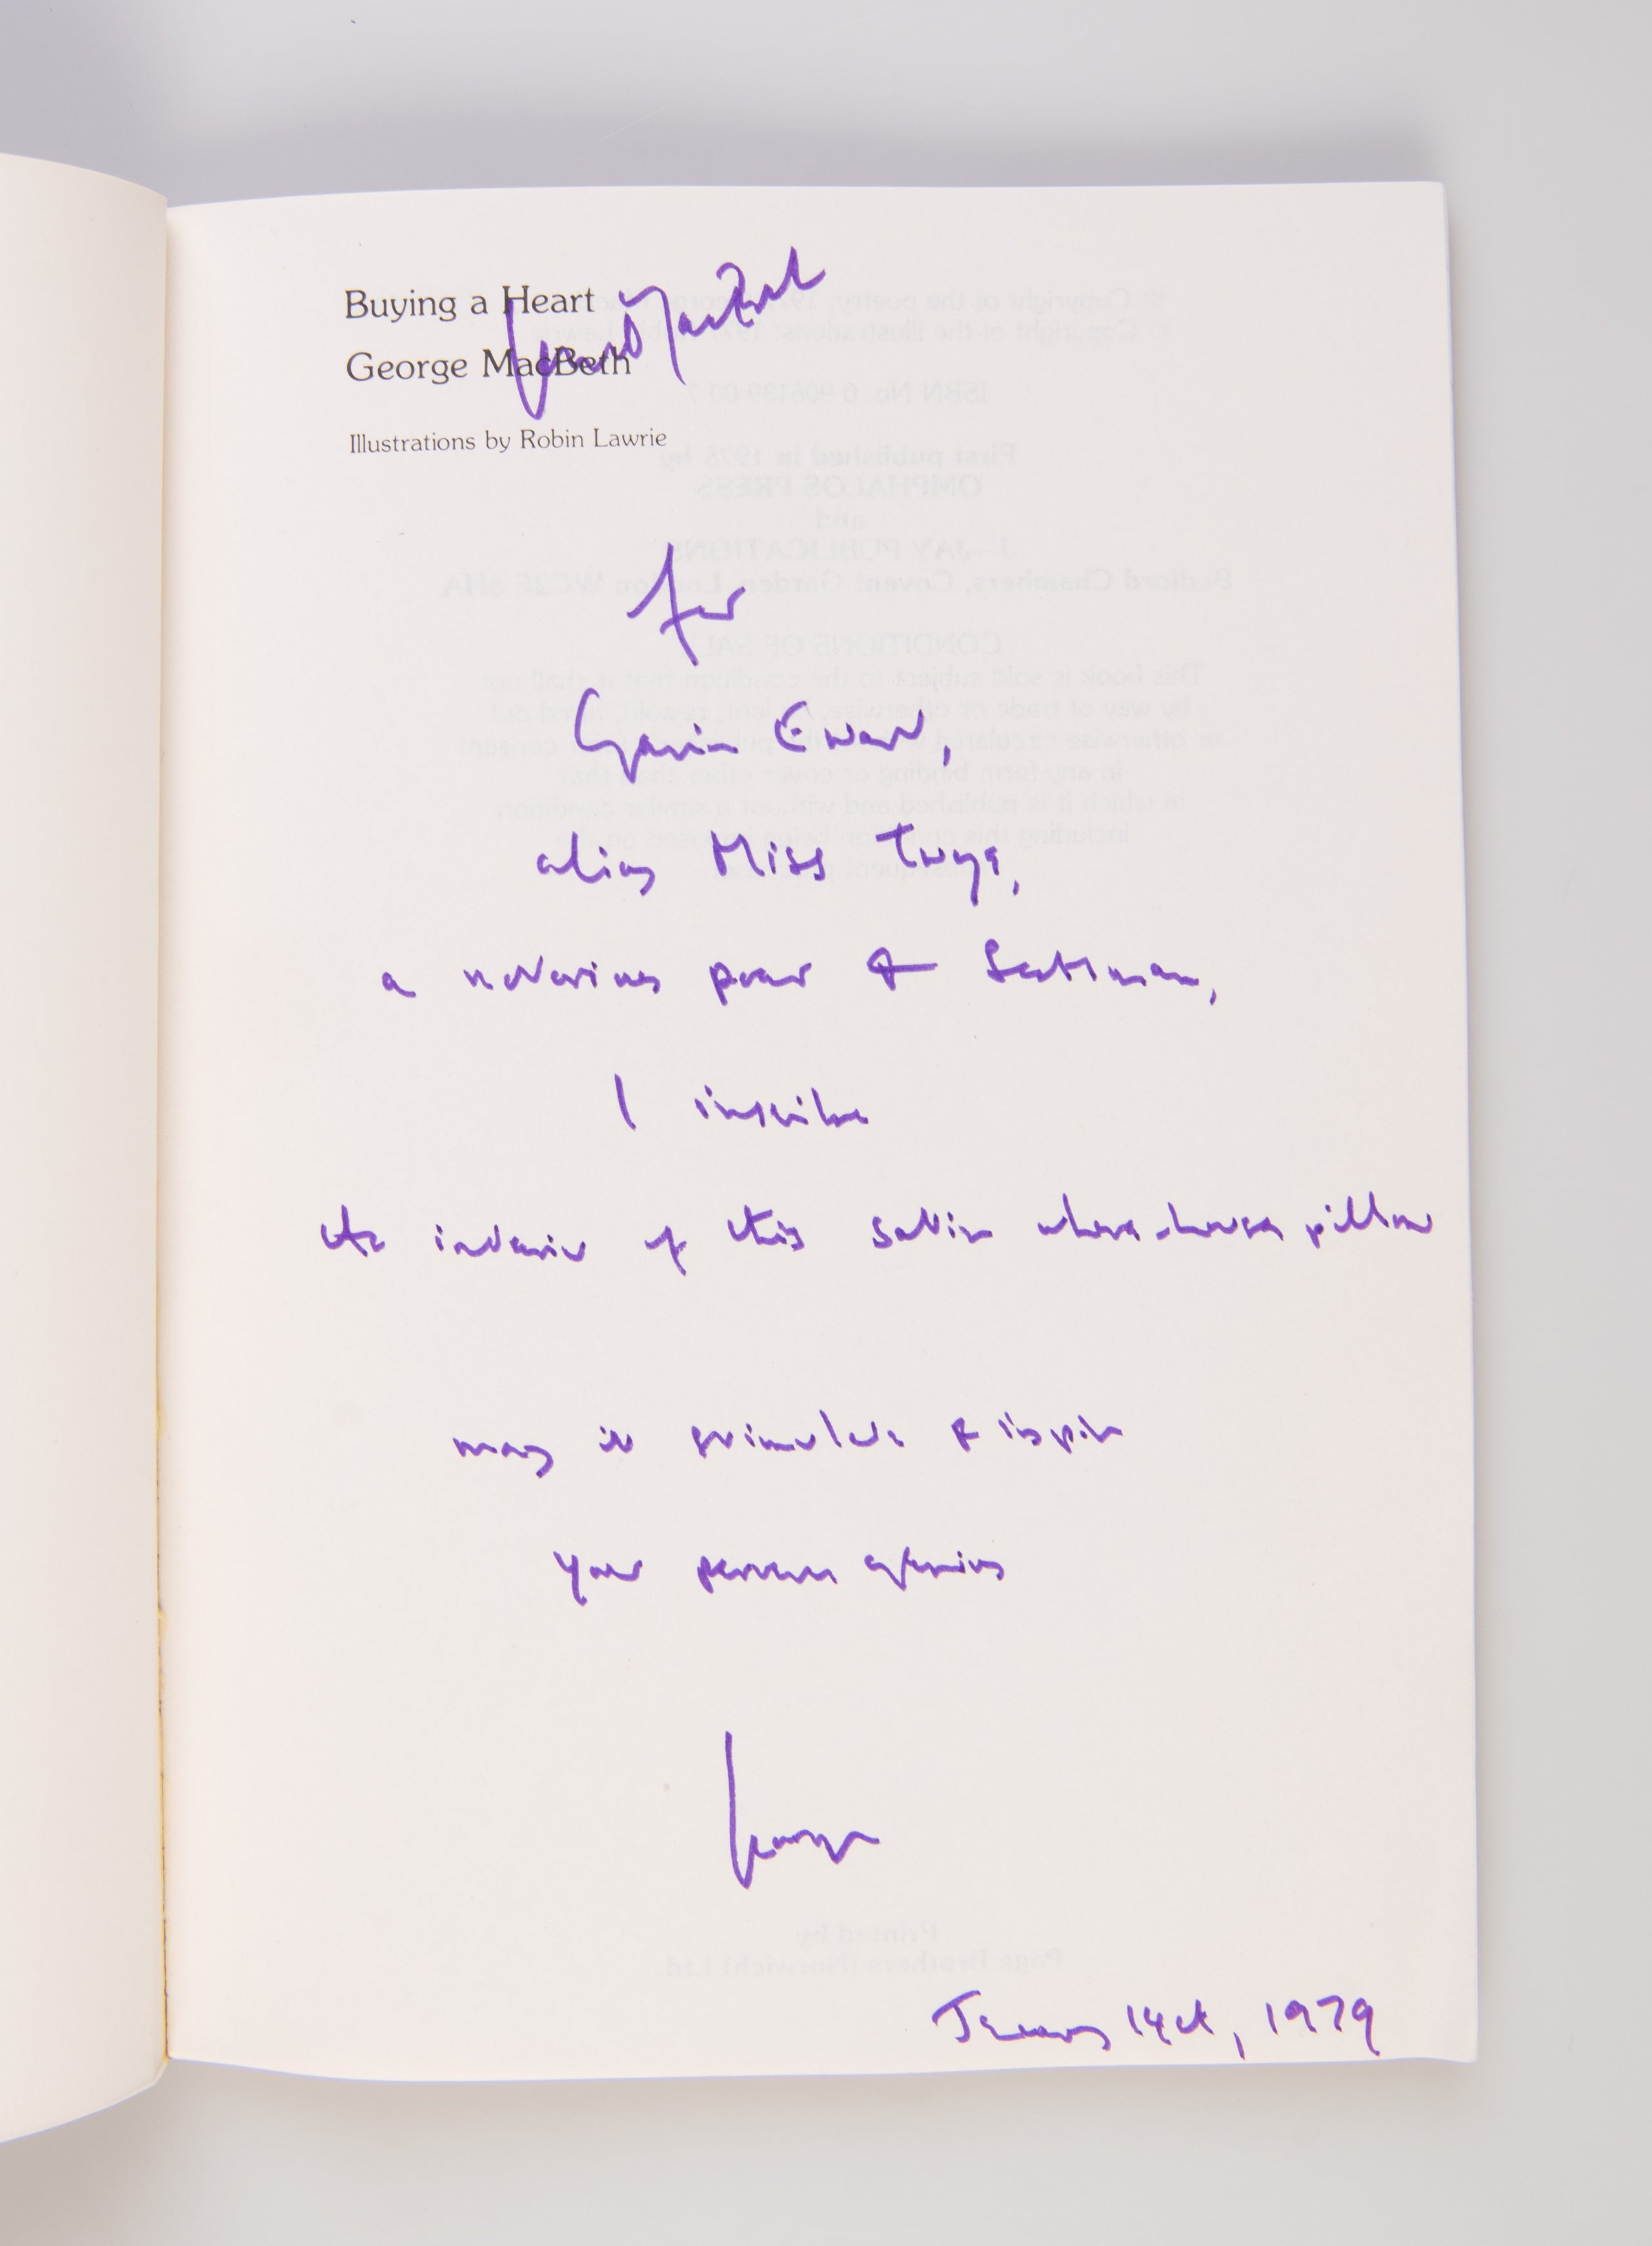 Buying a Heart
George MacBeth
George MacBeth
Illustrations by Robin Lawrie
for
Gavin Ewart,
alias Miss Twye,
a notorious poet & Scotsman,
I inscribe
the interior of this satin whore-house pillow
may it stimulate & inspire
your genius
George
January 14th, 1979